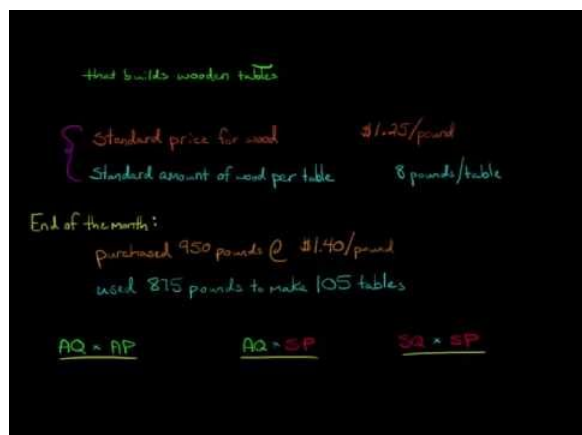 that builds wooden tables
Standard price for wood $1.25/pound
Standard amount of wood per table 8 pounds/table
End of the month:
purchased 950 pounds @ $1.40/pound
used 875 pounds to make 105 tables
AQ × AP AQ × SP SQ × SP